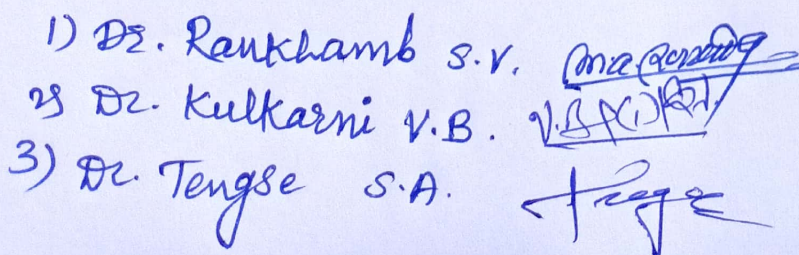 1) Dr. Rankhamb S.V.
2) Dr. Kulkarni V.B.
3) Dr. Tengse S.A.